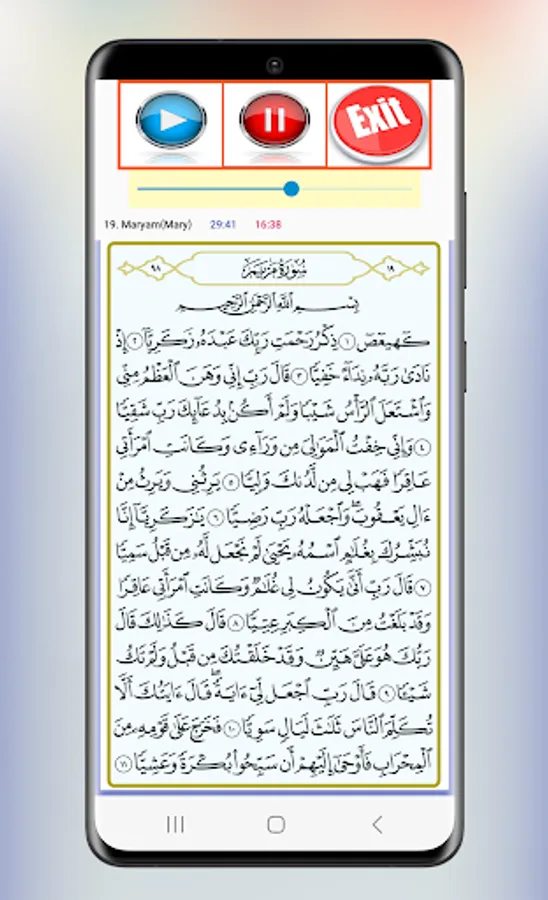 Exit
19. Maryam(Mary) 29:41 16:38
١٩ سُورَةُ مَرْيَمَ ٩٨
بِسْمِ ٱللَّهِ ٱلرَّحْمَٰنِ ٱلرَّحِيمِ
كٓهيعٓصٓ ١ ذِكْرُ رَحْمَتِ رَبِّكَ عَبْدَهُۥ زَكَرِيَّآ ٢ إِذْ
نَادَىٰ رَبَّهُۥ نِدَآءً خَفِيًّا ٣ قَالَ رَبِّ إِنِّى وَهَنَ ٱلْعَظْمُ مِنِّى
وَٱشْتَعَلَ ٱلرَّأْسُ شَيْبًا وَلَمْ أَكُنۢ بِدُعَآئِكَ رَبِّ شَقِيًّا
٤ وَإِنِّى خِفْتُ ٱلْمَوَٰلِىَ مِن وَرَآءِى وَكَانَتِ ٱمْرَأَتِى
عَاقِرًا فَهَبْ لِى مِن لَّدُنكَ وَلِيًّا ٥ يَرِثُنِى وَيَرِثُ مِنْ
ءَالِ يَعْقُوبَ ۖ وَٱجْعَلْهُ رَبِّ رَضِيًّا ٦ يَٰزَكَرِيَّآ إِنَّا
نُبَشِّرُكَ بِغُلَٰمٍ ٱسْمُهُۥ يَحْيَىٰ لَمْ نَجْعَل لَّهُۥ مِن قَبْلُ سَمِيًّا
٧ قَالَ رَبِّ أَنَّىٰ يَكُونُ لِى غُلَٰمٌ وَكَانَتِ ٱمْرَأَتِى عَاقِرًا
وَقَدْ بَلَغْتُ مِنَ ٱلْكِبَرِ عِتِيًّا ٨ قَالَ كَذَٰلِكَ قَالَ
رَبُّكَ هُوَ عَلَىَّ هَيِّنٌ وَقَدْ خَلَقْتُكَ مِن قَبْلُ وَلَمْ تَكُ
شَيْـًٔا ٩ قَالَ رَبِّ ٱجْعَل لِّىٓ ءَايَةً ۚ قَالَ ءَايَتُكَ أَلَّا
تُكَلِّمَ ٱلنَّاسَ ثَلَٰثَ لَيَالٍ سَوِيًّا ١٠ فَخَرَجَ عَلَىٰ قَوْمِهِۦ مِنَ
ٱلْمِحْرَابِ فَأَوْحَىٰٓ إِلَيْهِمْ أَن سَبِّحُوا۟ بُكْرَةً وَعَشِيًّا ١١